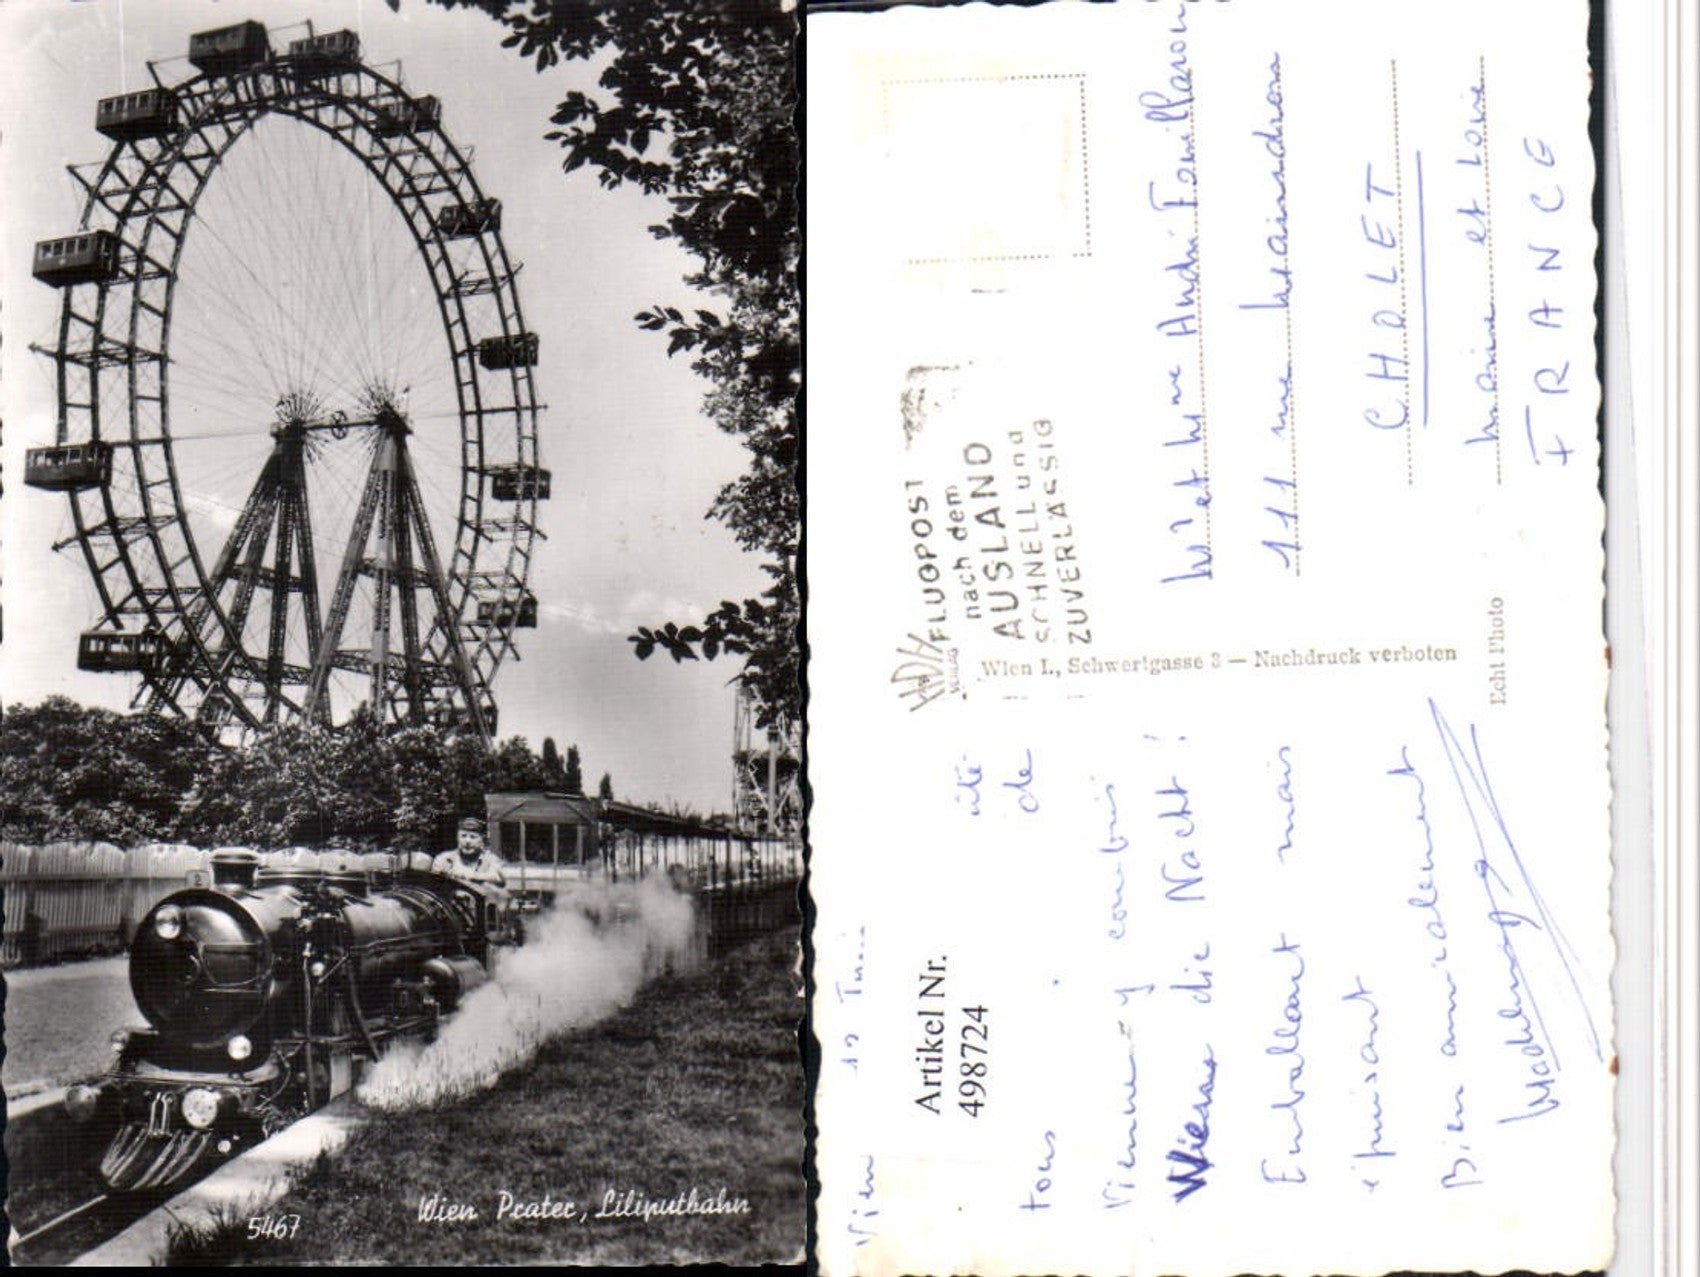 5467
Wien Prater, Liliputbahn
Vien 12 Juin
Artikel Nr.
498724
ité
tous de
Vienne y combris
Wiener die Nacht!
Emballant mais
épuisant
Bien amicalement
FLUGPOST
nach dem
AUSLAND
SCHNELL und
ZUVERLÄSSIG
VERLAG
Wien I., Schwertgasse 3 — Nachdruck verboten
Echt Photo
Mr et Mme André
111 rue
CHOLET
Maine et Loire
FRANCE